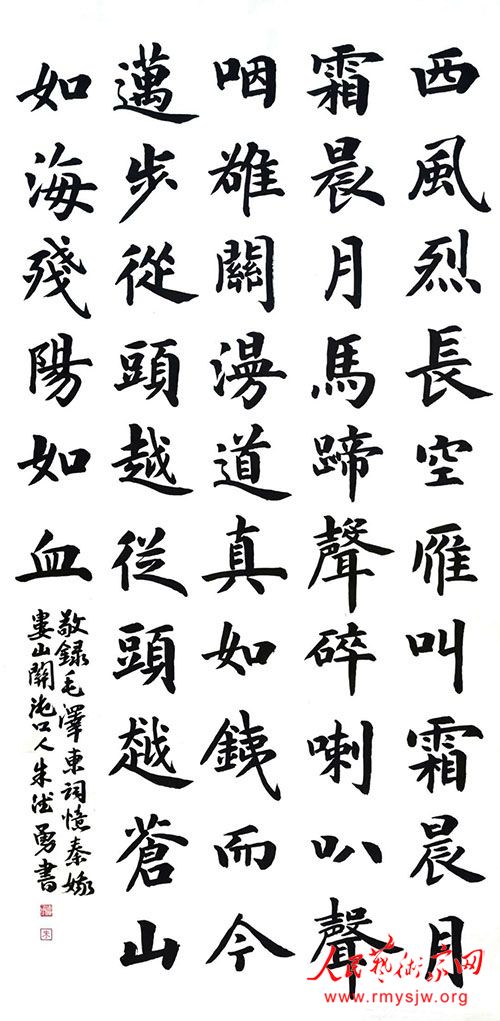 西風烈長空雁叫霜晨月
霜晨月馬蹄聲碎喇叭聲
咽雄關漫道真如銕而今
邁步從頭越従頭越蒼山
如海殘陽如血
敬録毛澤東詞憶秦娥
婁山關口人朱勇書
人民藝術家网
www.rmysjw.org